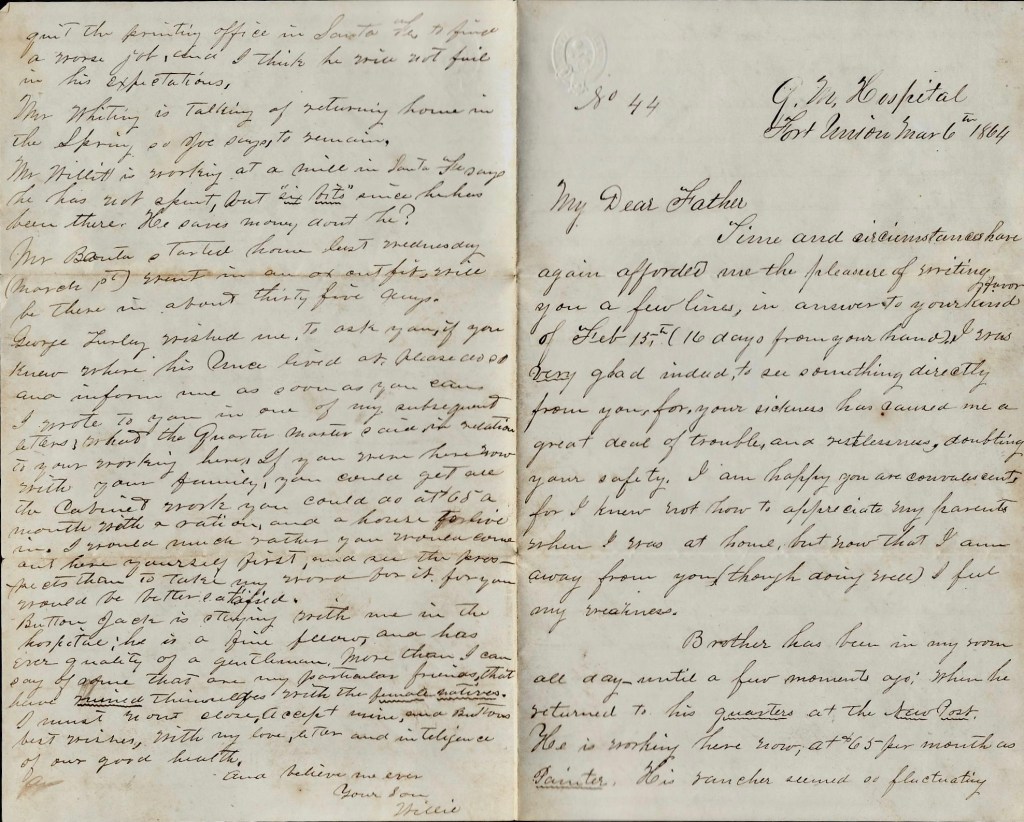 quit the printing office in Santa Fe to find
a worse job, and I think he will not fail
in his expectations.
Mr Whiting is talking of returning home in
the Spring so Joe says, to remain.
Mr Willitt is working at a mill in Santa Fe says
he has not spent, but "six bits" since he has
been there. He saves money dont he?
Mr Banta started home last wednesday
(March 1st) went in an ox outfit, will
be there in about thirty five days.
George Turley wished me, to ask you, if you
knew where his Unce lived at, please do so
and inform me as soon as you can.
I wrote to you in one of my subsequent
letters, what the Quarter Master said, in relation
to your working here, If you were here now
with your family, you could get all
the Cabinet work you could do at $65 a
month with a ration, and a house to live
in. I would much rather you would come
out here yourself first, and see the pros-
pects than to take my word for it, for you
would be better satisfied.
Button Jack is staying with me in the
hospital; he is a fine fellow, and has
ever quality of a gentleman. More than I can
say of some that are my particular friends, that
have ruined themselves with the female natives.
I must now close, accept mine, and Buttons
best wishes, with my love, later and inteligence
of our good health,
And believe me ever
Your Son
Willie
No 44
G. M. Hospital
Fort Union Mar 6th 1864
My Dear Father
Time and circumstances have
again afforded me the pleasure of writing
you a few lines, in answer to your kind favor
of Feb 15th (16 days from your hand), I was
very glad indeed, to see something directly
from you, for, your sickness has caused me a
great deal of trouble, and restlessness, doubting
your safety. I am happy you are convalescent
for I knew not how to appreciate my parents
when I was at home, but now that I am
away from you (though doing well) I feel
my weakness.
Brother has been in my room
all day until a few moments ago; when he
returned to his quarters at the New Post.
He is working here now, at $65 per month as
Painter. His rancher seemed so fluctuating